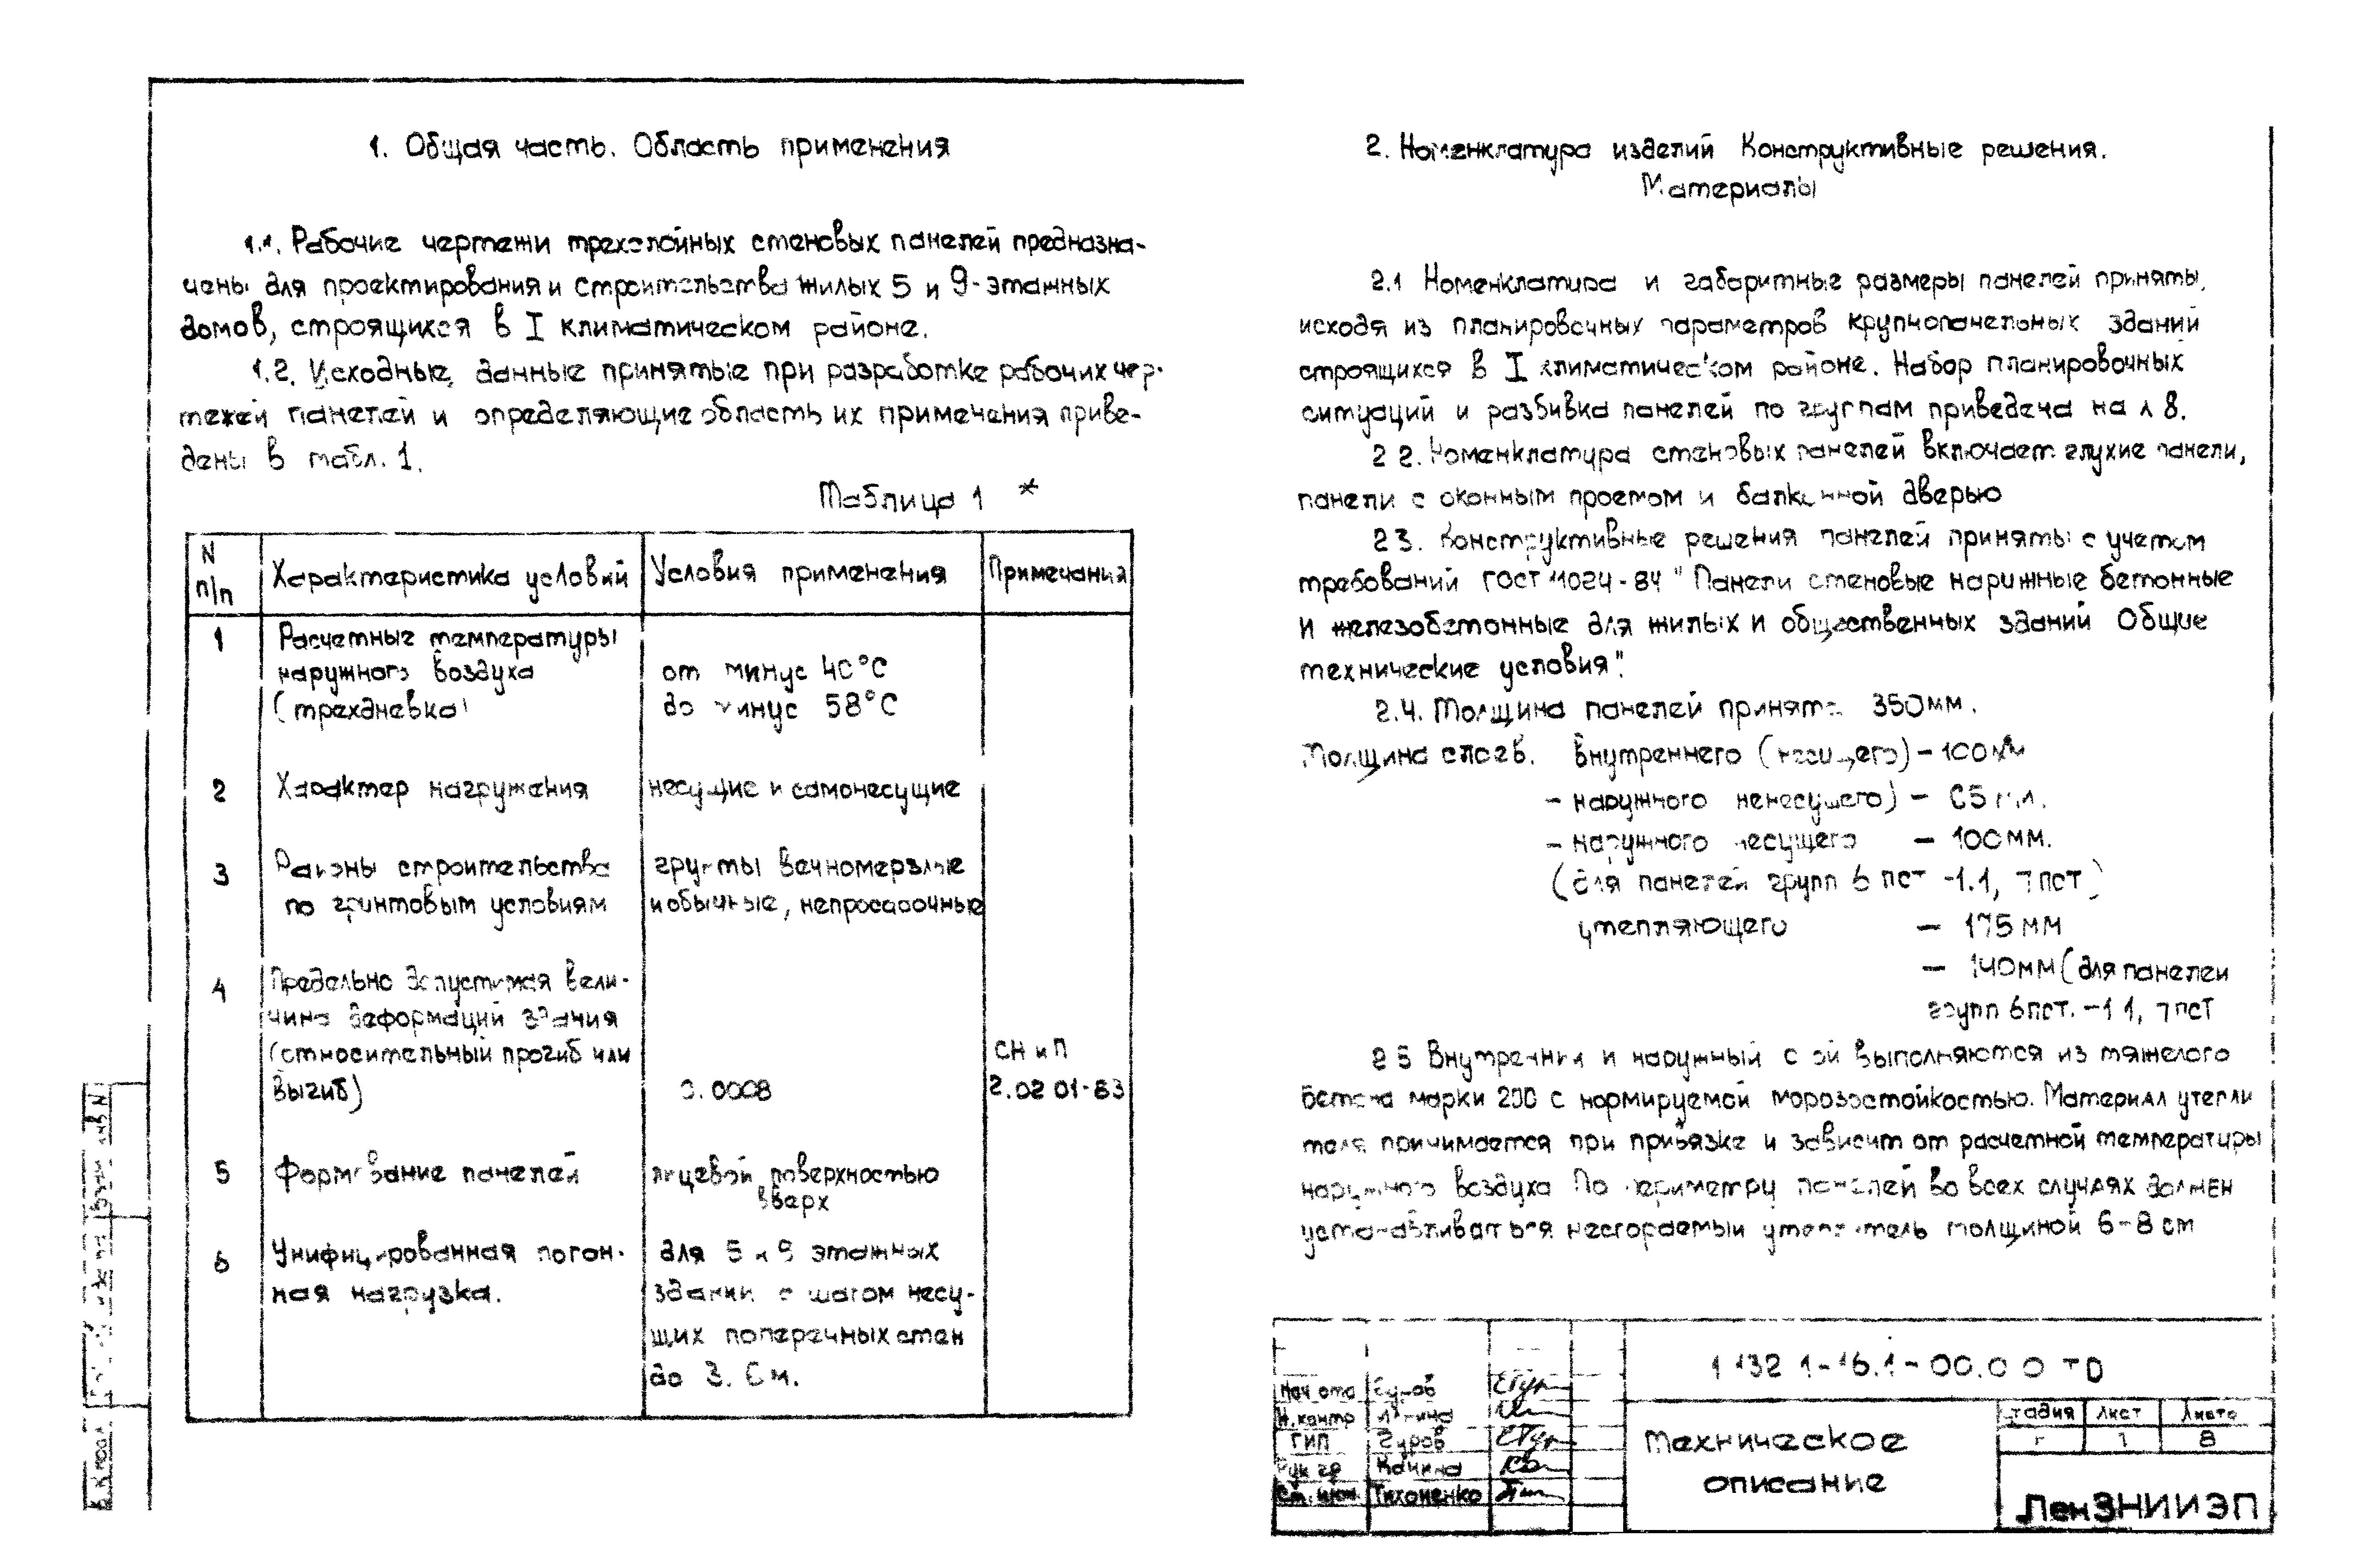 1. Общая часть. Область применения
1.1. Рабочие чертежи трехслойных стеновых панелей предназна-
чены для проектирования и строительства жилых 5 и 9-этажных
домов, строящихся в I климатическом районе.
1.2. Исходные данные принятые при разработке рабочих чер-
тежей панелей и определяющие область их применения приве-
дены в табл. 1.
Таблица 1 *
N п/п
Характеристика условий
Условия применения
Примечания
1
Расчетные температуры
наружного воздуха
(трехдневка)
от минус 40°С
до минус 58°С
2
Характер нагружения
несущие и самонесущие
3
Районы строительства
по грунтовым условиям
грунты вечномерзлые
и обычные, непросадочные
4
Предельно допустимая вели-
чина деформаций здания
(относительный прогиб или
выгиб)
0.0008
СНиП
2.02 01-83
5
Формование панелей
лицевой поверхностью
вверх
6
Унифицированная погон-
ная нагрузка.
для 5 и 9 этажных
зданий с шагом несу-
щих поперечных стен
до 3. 6м.
2. Номенклатура изделий Конструктивные решения.
Материалы
2.1 Номенклатура и габаритные размеры панелей приняты,
исходя из планировочных параметров крупнопанельных зданий
строящихся в I климатическом районе. Набор планировочных
ситуаций и разбивка панелей по группам приведена на л 8.
2 2. Номенклатура стеновых панелей включает глухие панели,
панели с оконным проемом и балконной дверью
2 3. Конструктивные решения панелей приняты с учетом
требований ГОСТ 11024-84 "Панели стеновые наружные бетонные
и железобетонные для жилых и общественных зданий Общие
технические условия".
2.4. Толщина панелей принята 350мм.
Толщина слоев. внутреннего (несущего) - 100мм
- наружного ненесущего) - 65мм.
- наружного несущего - 100мм.
(для панелей групп 6 пст -1.1, 7пст)
утепляющего - 175мм
- 140мм (для панелей
групп 6пст. -1 1, 7пст
2 5 Внутренний и наружный слой выполняются из тяжелого
бетона марки 200 с нормируемой морозостойкостью. Материал утепли
теля принимается при привязке и зависит от расчетной температуры
наружного воздуха По периметру панелей во всех случаях должен
устанавливаться несгораемый утеплитель толщиной 6-8 см
1 132 1-16.1-00.0 0 ТО
Нач отд Гуров
Н.контр
ГИП Гуров
Рук гр Канина
Ст. инж. Тихоненко
Техническое
описание
стадия лист листо
1 8
ЛенЗНИИЭП